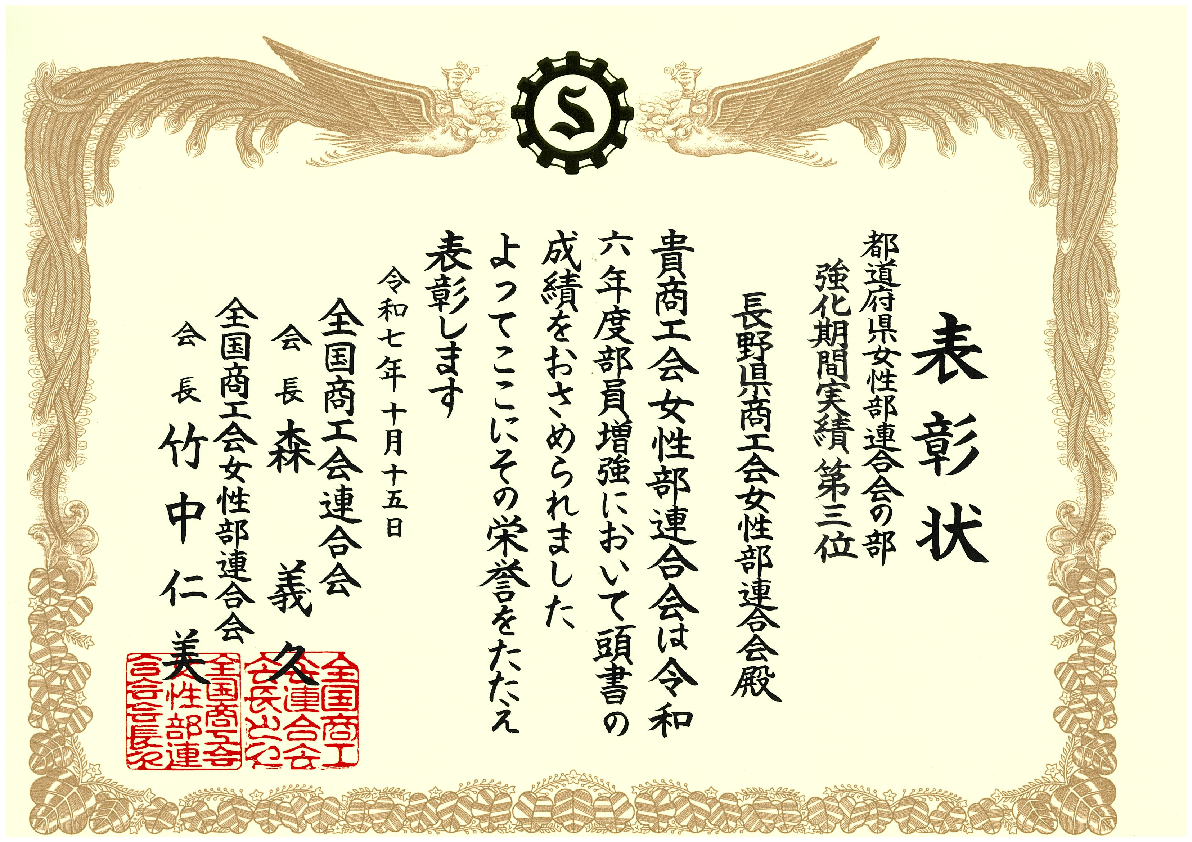 表彰状
都道府県女性部連合会の部
強化期間実績 第三位
長野県商工会女性部連合会殿
貴商工会女性部連合会は令和
六年度部員増強において頭書の
成績をおさめられました
よってここにその栄誉をたたえ
表彰します
令和七年十月十五日
全国商工会連合会
会長 森 義久
全国商工会女性部連合会
会長 竹中仁美
S
全国商工
会連合会
会長之印
全国商工会
女性部連
合会会長之